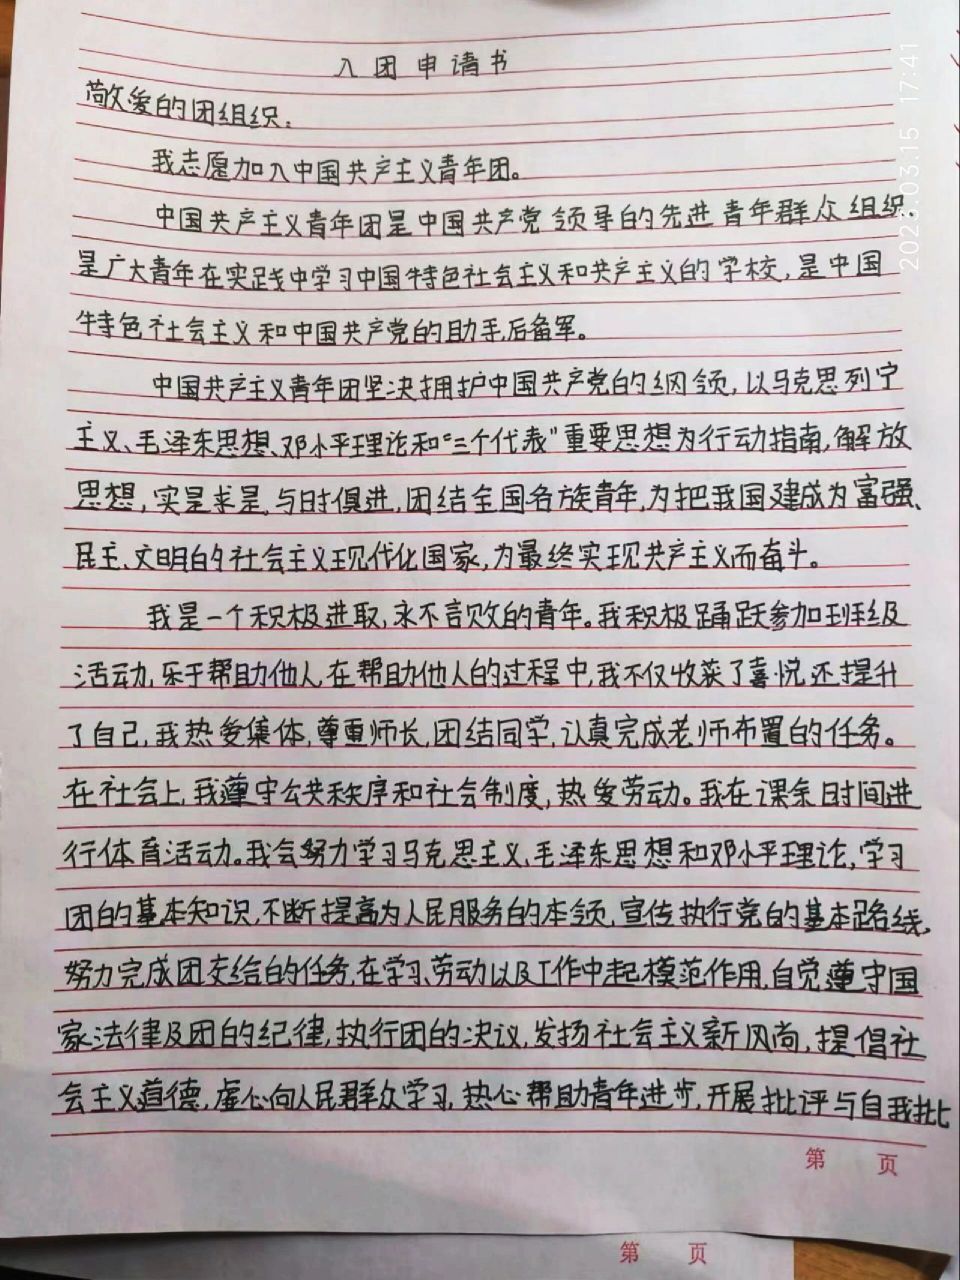 入团申请书
敬爱的团组织:
我志愿加入中国共产主义青年团。
中国共产主义青年团是中国共产党领导的先进青年群众组织,
是广大青年在实践中学习中国特色社会主义和共产主义的学校,是中国
特色社会主义和中国共产党的助手后备军。
中国共产主义青年团坚决拥护中国共产党的纲领,以马克思列宁
主义、毛泽东思想、邓小平理论和“三个代表”重要思想为行动指南,解放
思想,实是求是,与时俱进,团结全国各族青年,为把我国建成为富强、
民主、文明的社会主义现代化国家,为最终实现共产主义而奋斗。
我是一个积极进取,永不言败的青年。我积极踊跃参加班级
活动,乐于帮助他人,在帮助他人的过程中,我不仅收获了喜悦还提升
了自己,我热爱集体,尊重师长,团结同学,认真完成老师布置的任务。
在社会上,我遵守公共秩序和社会制度,热爱劳动。我在课余时间进
行体育活动。我会努力学习马克思主义、毛泽东思想和邓小平理论,学习
团的基本知识,不断提高为人民服务的本领,宣传执行党的基本路线,
努力完成团交给的任务,在学习、劳动以及工作中起模范作用,自觉遵守国
家法律及团的纪律,执行团的决议,发扬社会主义新风尚,提倡社
会主义道德,虚心向人民群众学习,热心帮助青年进步,开展批评与自我批
第 页
第 页
2023.03.15 17:41